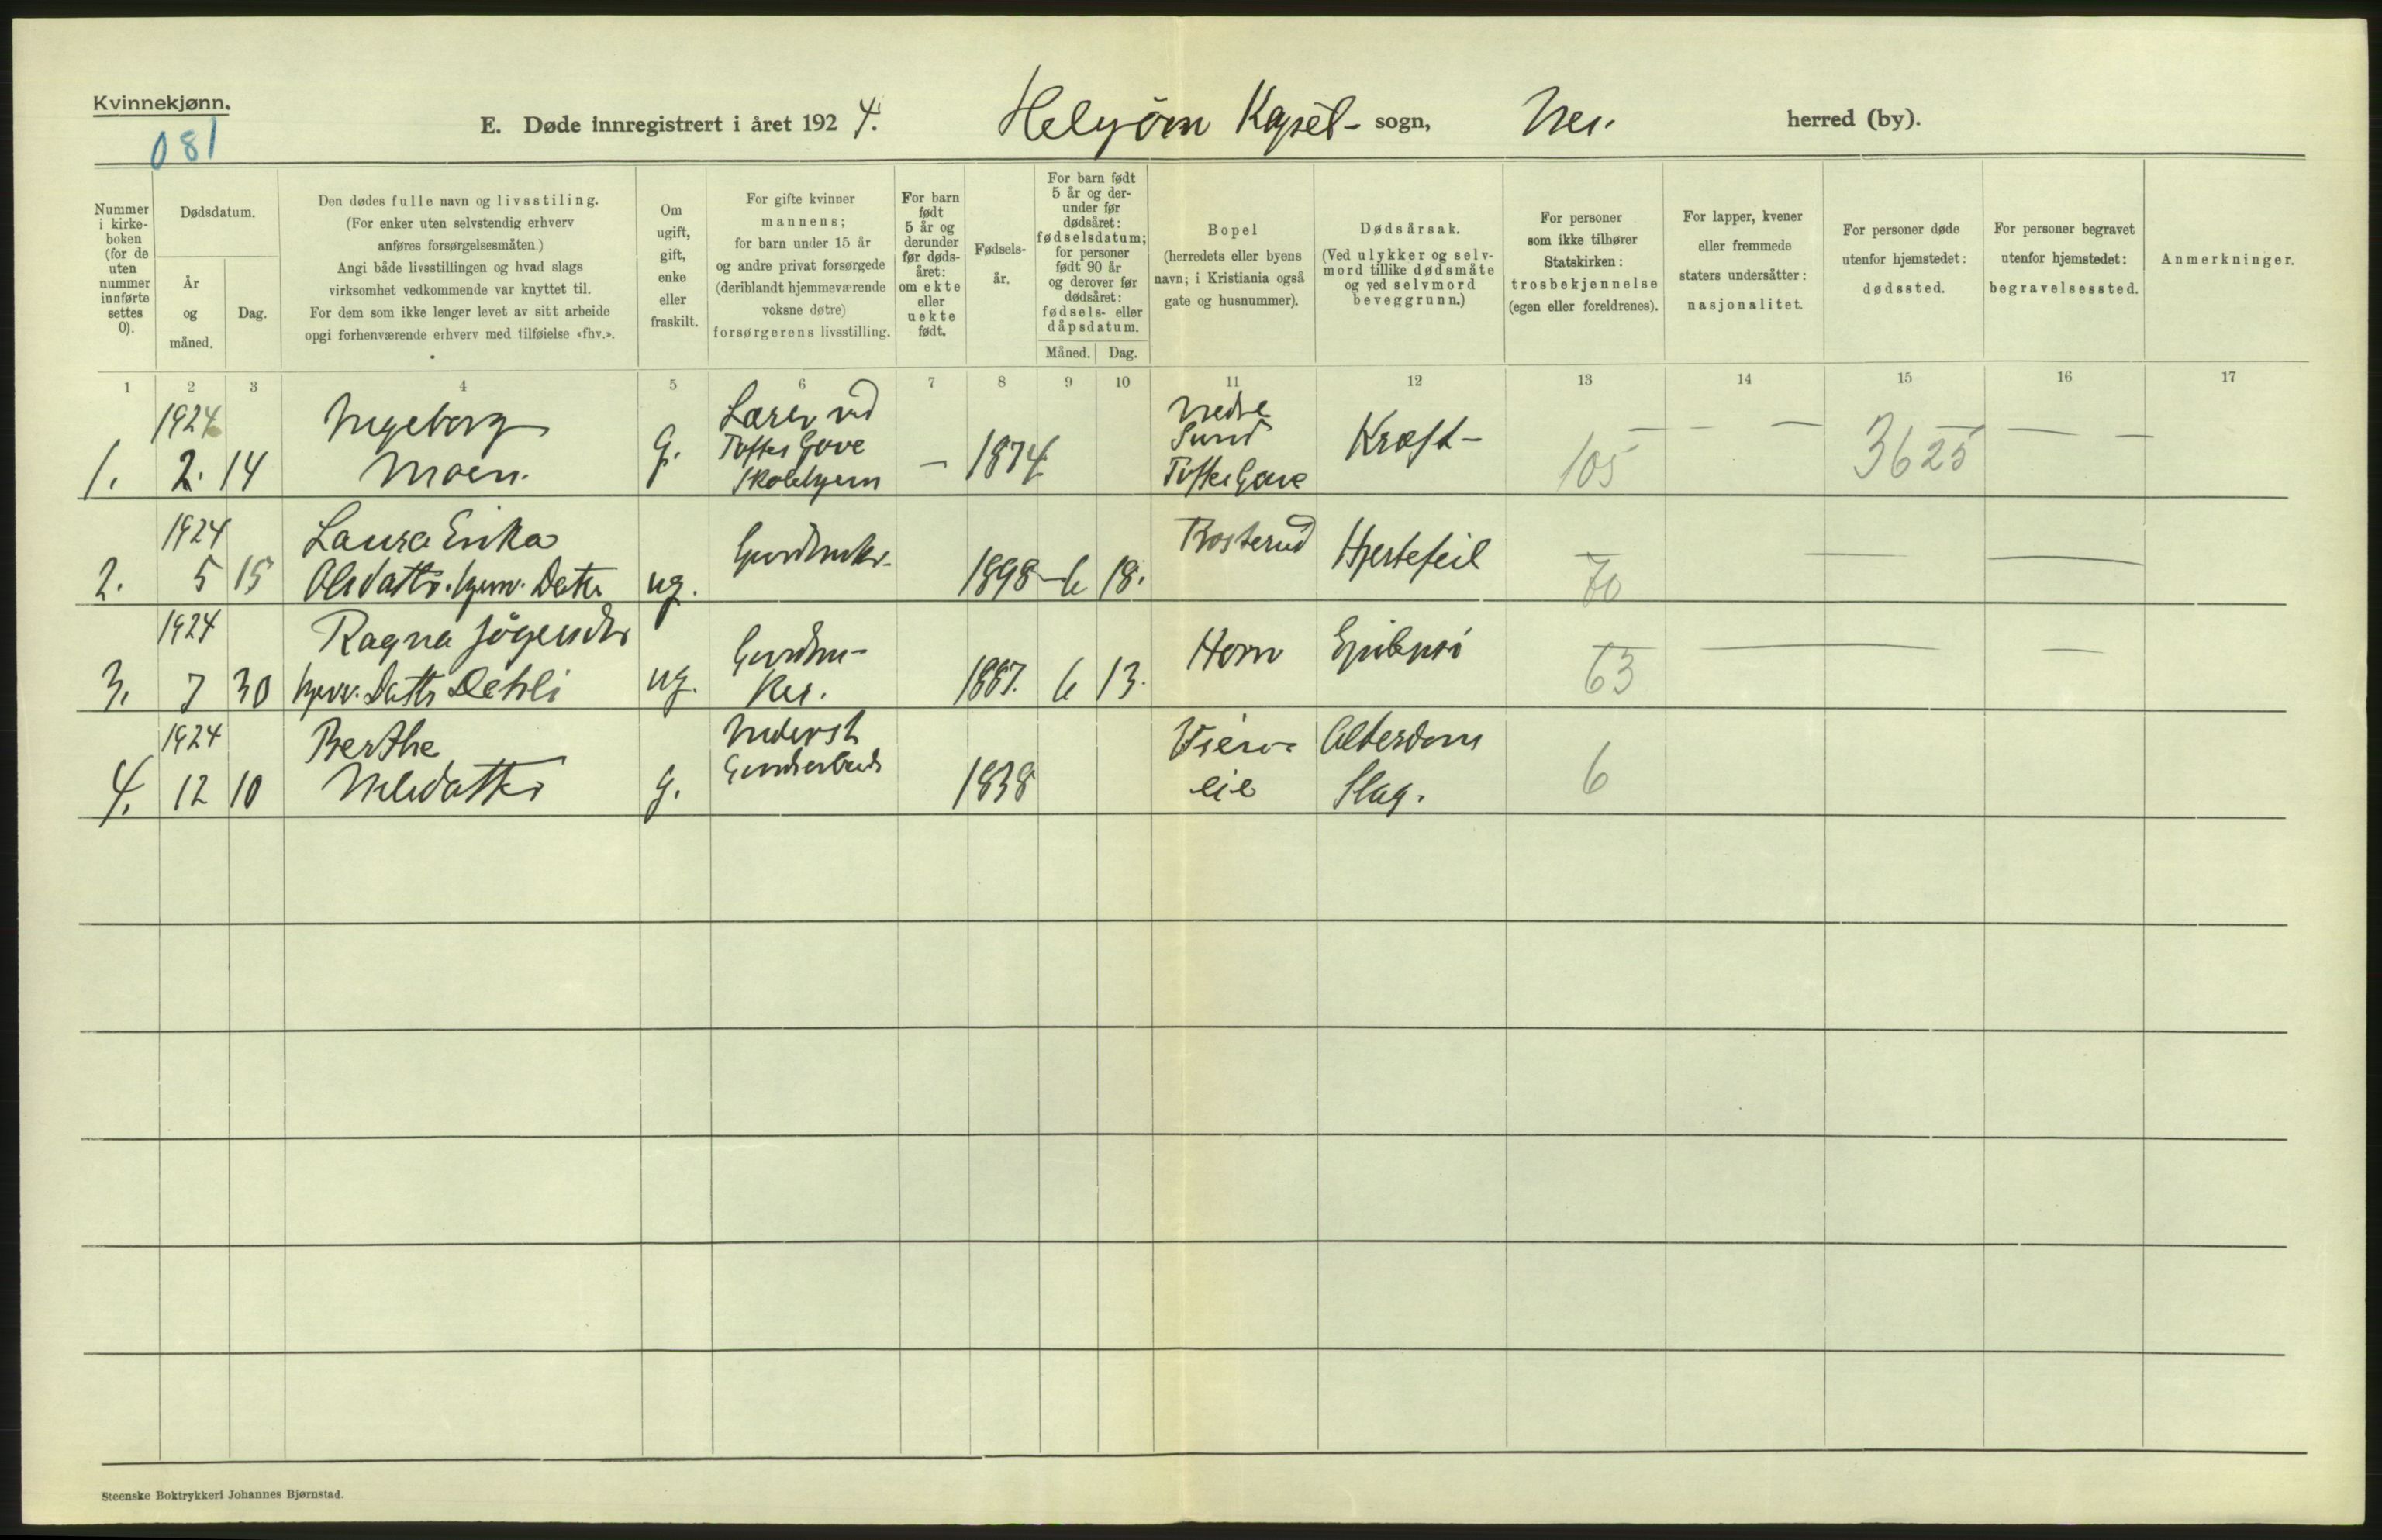 Kvinnekjønn.
081
E. Døde innregistrert i året 1924. Helgøen Kapel- sogn, Nes. herred (by).
Nummer i kirkeboken (for de uten nummer innførte settes 0).
Dødsdatum.
År og måned.
Dag.
Den dødes fulle navn og livsstiling.
(For enker uten selvstendig erhverv
anføres forsørgelsesmåten)
Angi både livsstillingen og hvad slags
virksomhet vedkommende var knyttet til.
For dem som ikke lenger levet av sitt arbeide
opgi forhenværende erhverv med tilføielse «fhv.».
Om ugift, gift, enke eller fraskilt.
For gifte kvinner
mannens;
for barn under 15 år
og andre privat forsørgede
(deriblandt hjemmeværende
voksne døtre)
forsørgerens livsstilling.
For barn født 5 år og derunder før dødsåret: om ekte eller uekte født.
Fødselsår.
For barn født 5 år og derunder før dødsåret: fødselsdatum; for personer født 90 år og derover før dødsåret: fødsels- eller dåpsdatum.
Måned. Dag.
Bopel
(herredets eller byens
navn; i Kristiania også
gate og husnummer).
Dødsårsak.
(Ved ulykker og selvmord tillike dødsmåte
og ved selvmord
beveggrunn.)
For personer
som ikke tilhører
Statskirken:
trosbekjennelse
(egen eller foreldrenes).
For lapper, kvener
eller fremmede
staters undersåtter:
nasjonalitet.
For personer døde
utenfor hjemstedet:
dødssted.
For personer begravet
utenfor hjemstedet:
begravelsessted.
Anmerkninger.
1 2 3 4 5 6 7 8 9 10 11 12 13 14 15 16 17
1. 1924 2. 14 Ingeborg Moen. g. Lærer ved Toftes Gave Skolehjem – 1874 Nedre Sund Toftes Gave Kræft – 105 – – – 3625 – –
2. 1924 5 15 Laura Erika Olsdatter. hjem. Datter ug. Gaardbruker. 1898 – 6 18. Rosterud Hjertefeil – 70 – –
3. 1924 7 30 Ragna hjemv. Datter Dehli ug. Gaardbruker. 1887. 6 13. Horn Epilepsi – 63 – –
4. 1924 12 10 Berthe Nilsdatter g. 1838 eie Alderdom Slag. 6
Steenske Boktrykkeri Johannes Bjørnstad.